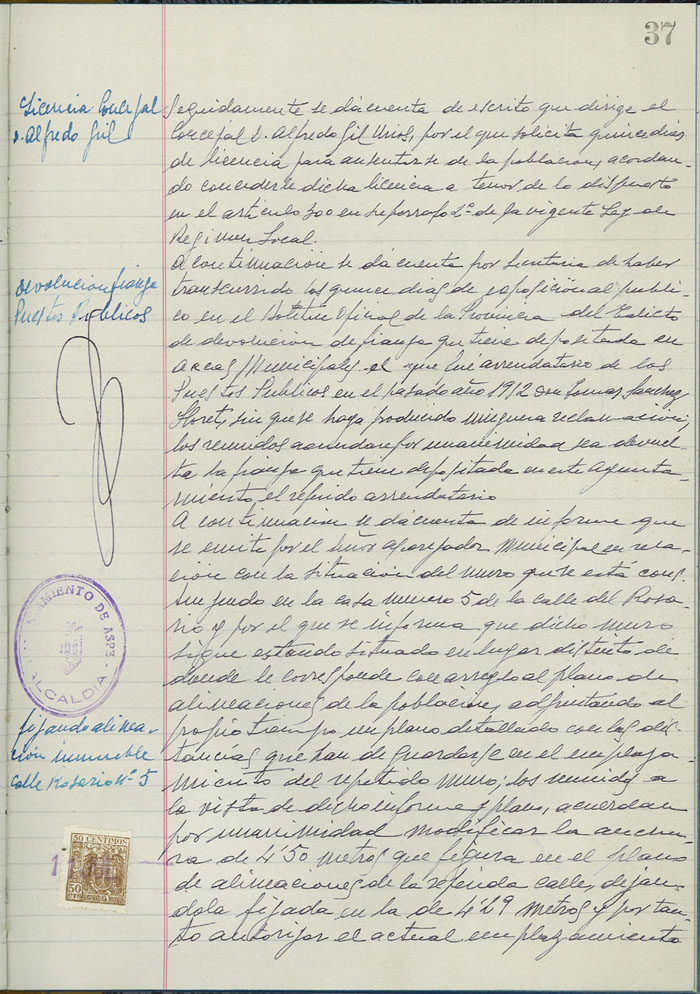 37
Licencia Concejal
D. Alfredo Gil
Seguidamente se da cuenta de escrito que dirige el
Concejal D. Alfredo Gil Urios, por el que solicita quince dias
de licencia para ausentarse de la poblacion, acordan-
do concederle dicha licencia a tenor de lo dispuesto
en el articulo 300 en su parrafo 2º de la vigente Ley de
Regimen Local.
devolucion fianza
Puestos Publicos
A continuación se da cuenta por Secretaria de haber
transcurrido los quince dias de exposicion al publi-
co en el Boletin Oficial de la Provincia del Edicto
de devolucion de fianza que tiene depositada en
Arcas Municipales el que fué arrendatario de los
Puestos Publicos en el pasado año 1952 don Tomas Sanchez
Lloret, sin que se haya producido ninguna reclamacion,
los reunidos acuerdan por unanimidad sea devuel-
ta la fianza que tiene depositada en este Ayunta-
miento, el referido arrendatario
A continuacion se da cuenta de informe que
se emite por el señor aparejador Municipal en rela-
ción con la situacion del muro que se está cons-
truyendo en la casa numero 5 de la calle del Rosa-
rio y por el que se informa que dicho muro
sigue estando situado en lugar distinto de
donde le corresponde con arreglo al plano de
alineaciones de la poblacion, adjuntando al
propio tiempo un plano detallado con las dis-
tancias que han de guardarse en el emplaza-
miento del repetido muro; los reunidos a
la vista de dicho informe y plano, acuerdan
por unanimidad modificar la anchu-
ra de 4'50 metros que figura en el plano
de alineaciones de la referida calle, dejan-
dola fijada en la de 4'29 metros y por tan-
to autorizar el actual emplazamiento
AYUNTAMIENTO DE ASPE
ALCALDIA
fijando alinea-
ción inmueble
calle Rosario Nº 5
50 CENTIMOS
50